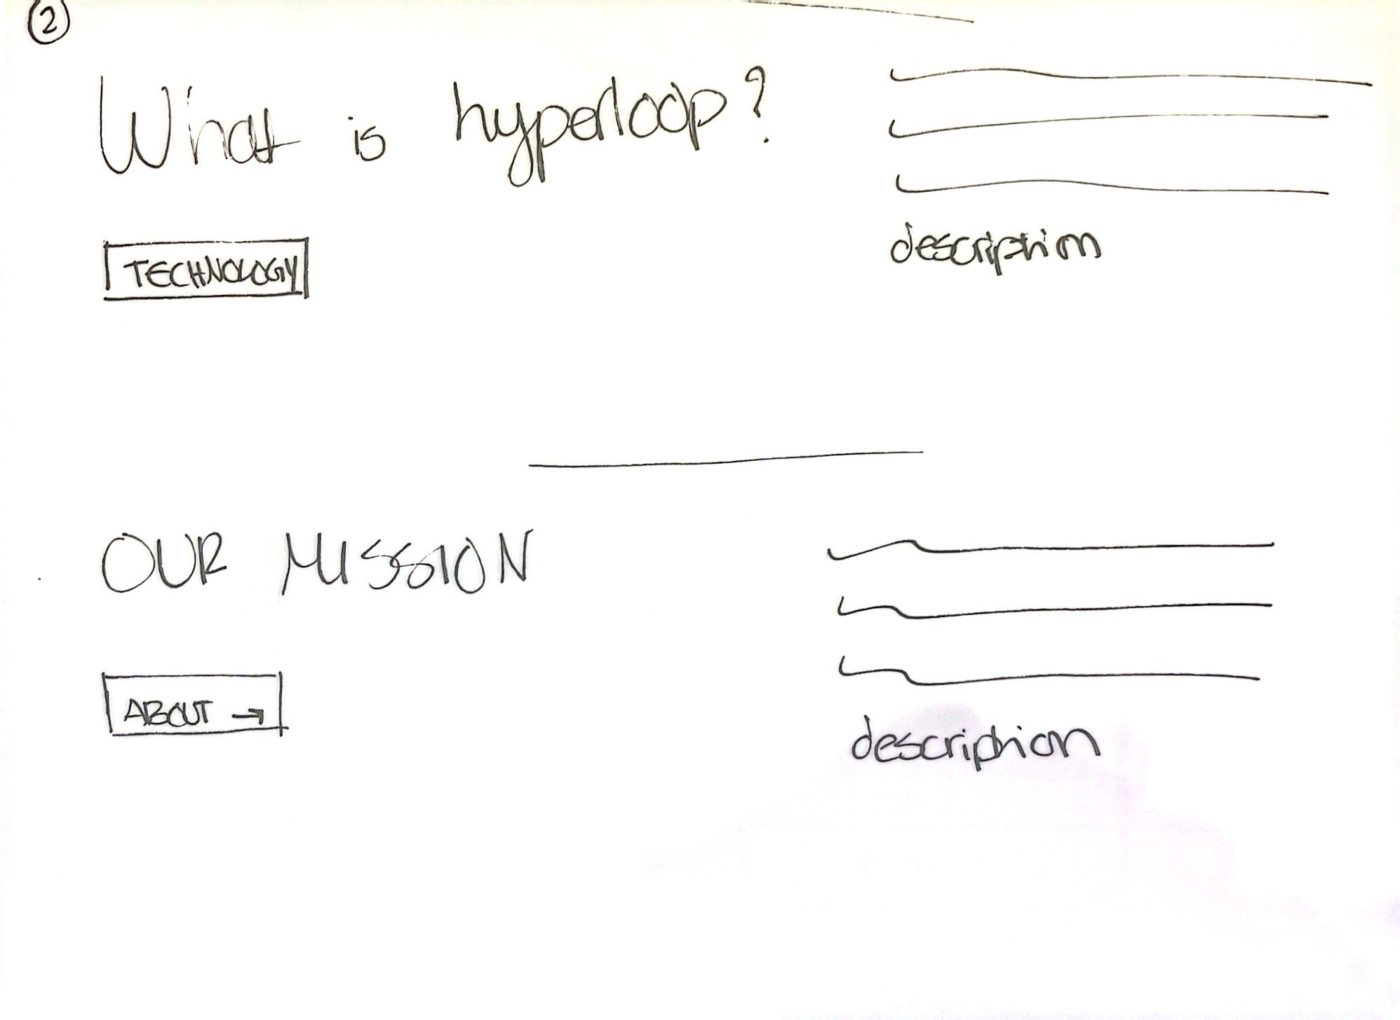 ②
What is hyperloop?
description
TECHNOLOGY
OUR MISSION
ABOUT →
description